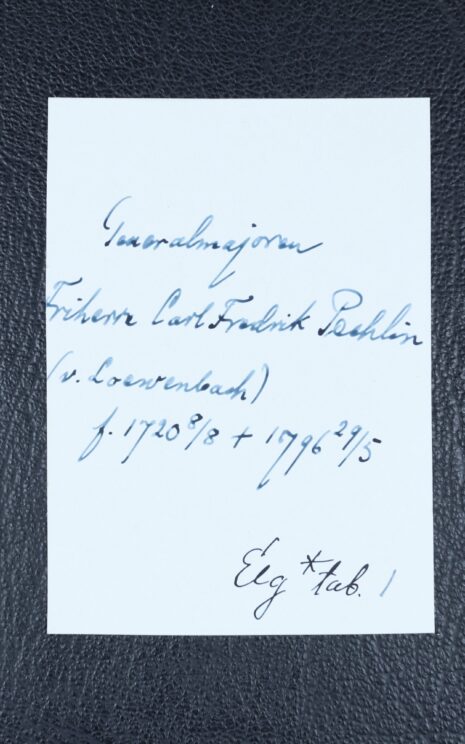 Generalmajoren
Friherre Carl Fredrik Pechlin
(v. Loewenbach)
f. 1720 8/8 + 1796 29/5
Elg * tab. 1